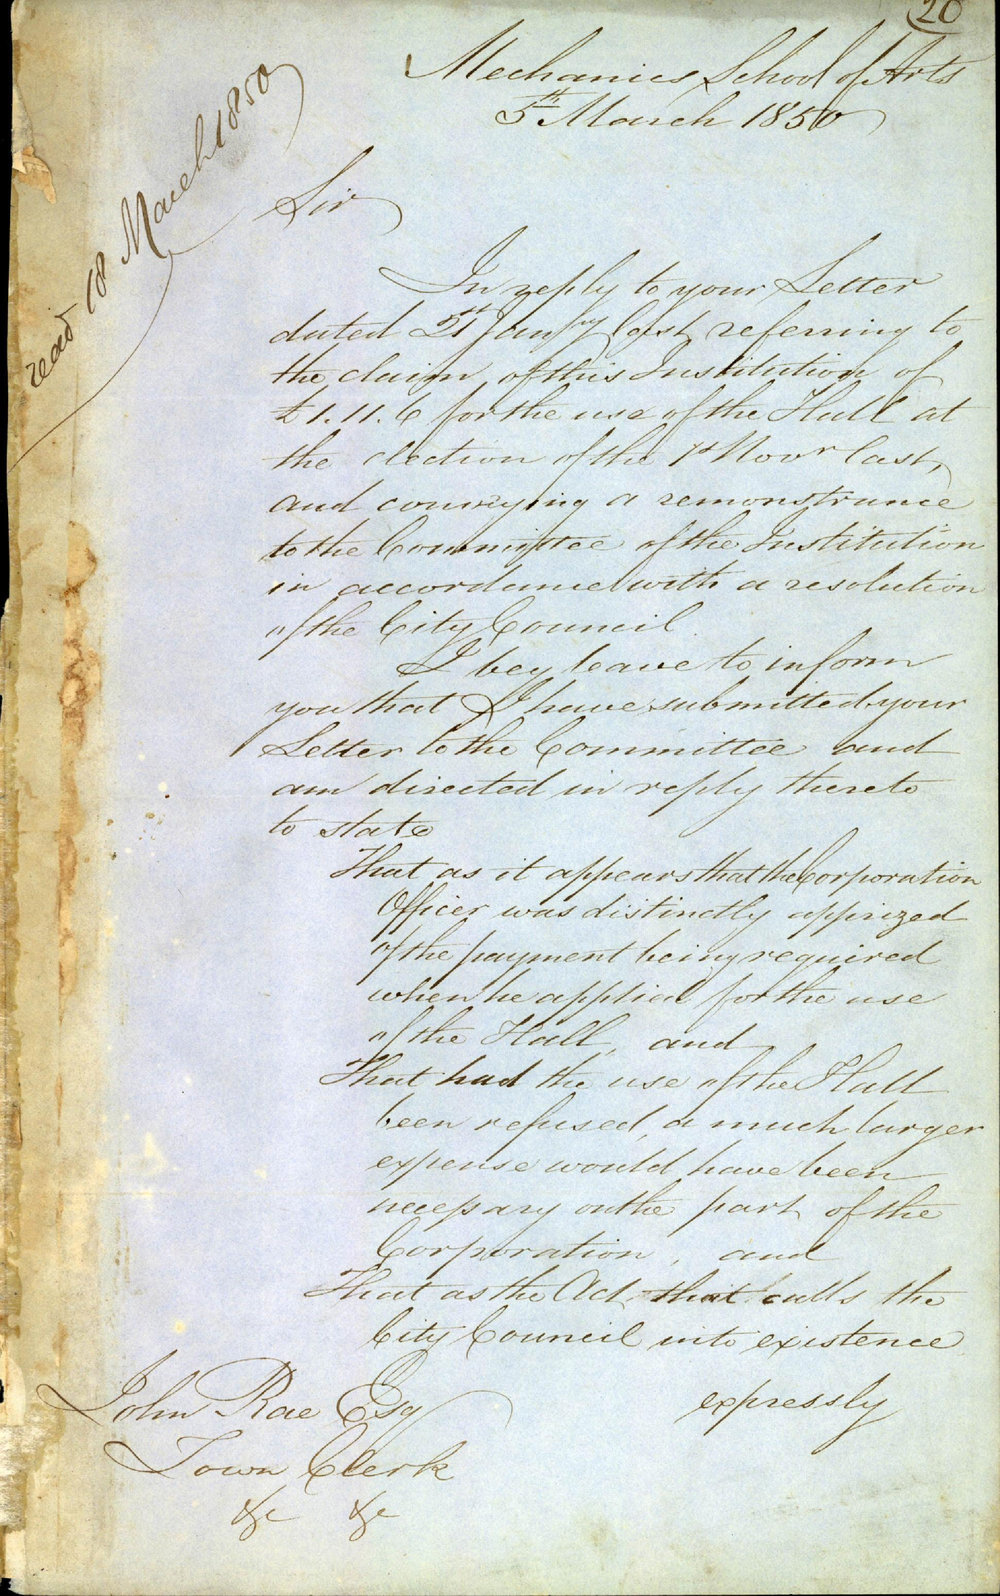 20
Mechanics School of Arts
5th March 1850
read 18 March 1850
Sir
In reply to your Letter
dated 21st Janry last, referring to
the claim of this Institution of
£1.11.6 for the use of the Hall at
the election of the 1st Novr last,
and conveying a remonstrance
to the Committee of the Institution
in accordance with a resolution
of the City Council.
I beg leave to inform
you that I have submitted your
Letter to the Committee and
am directed in reply thereto
to state
That as it appears that the Corporation
Officer was distinctly apprized
of the payment being required
when he applied for the use
of the Hall, and
That had the use of the Hall
been refused, a much larger
expense would have been
necessary on the part of the
Corporation, and
That as the Act, that calls the
City Council into existence
expressly
John Rae Esq
Town Clerk
&c &c